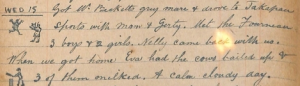 WED 15 Got Mr. Ricketts grey mare & drove to Takapau
Sports with Mom & Gorty. Met the Fourman
3 boys & 2 girls. Nelly came back with us.
When we got home Eva had the cows bailed up &
3 of them milked. A calm cloudy day.